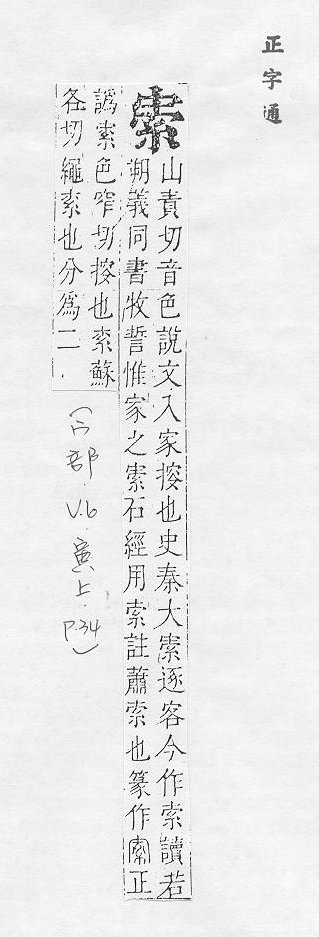 正字通
索
山責切音色說文入家搜也史秦大索逐客今作索讀若
朔義同書牧誓惟家之索石經用索註蕭索也篆作𡩡正
譌索色窄切搜也索蘇
各切繩索也分爲二.
(宀部.V.6.寅上.P.34)